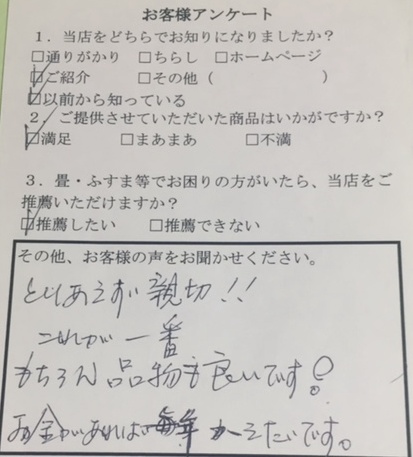 お客様アンケート
1．当店をどちらでお知りになりましたか？
□通りがかり □ちらし □ホームページ
□ご紹介 □その他（ ）
☑以前から知っている
2．ご提供させていただいた商品はいかがですか？
☑満足 □まあまあ □不満
3．畳・ふすま等でお困りの方がいたら、当店をご
推薦いただけますか？
☑推薦したい □推薦できない
その他、お客様の声をお聞かせください。
とりあえず親切!!
これが一番
もちろん品物も良いです!
お金があれば毎年かえたいです。